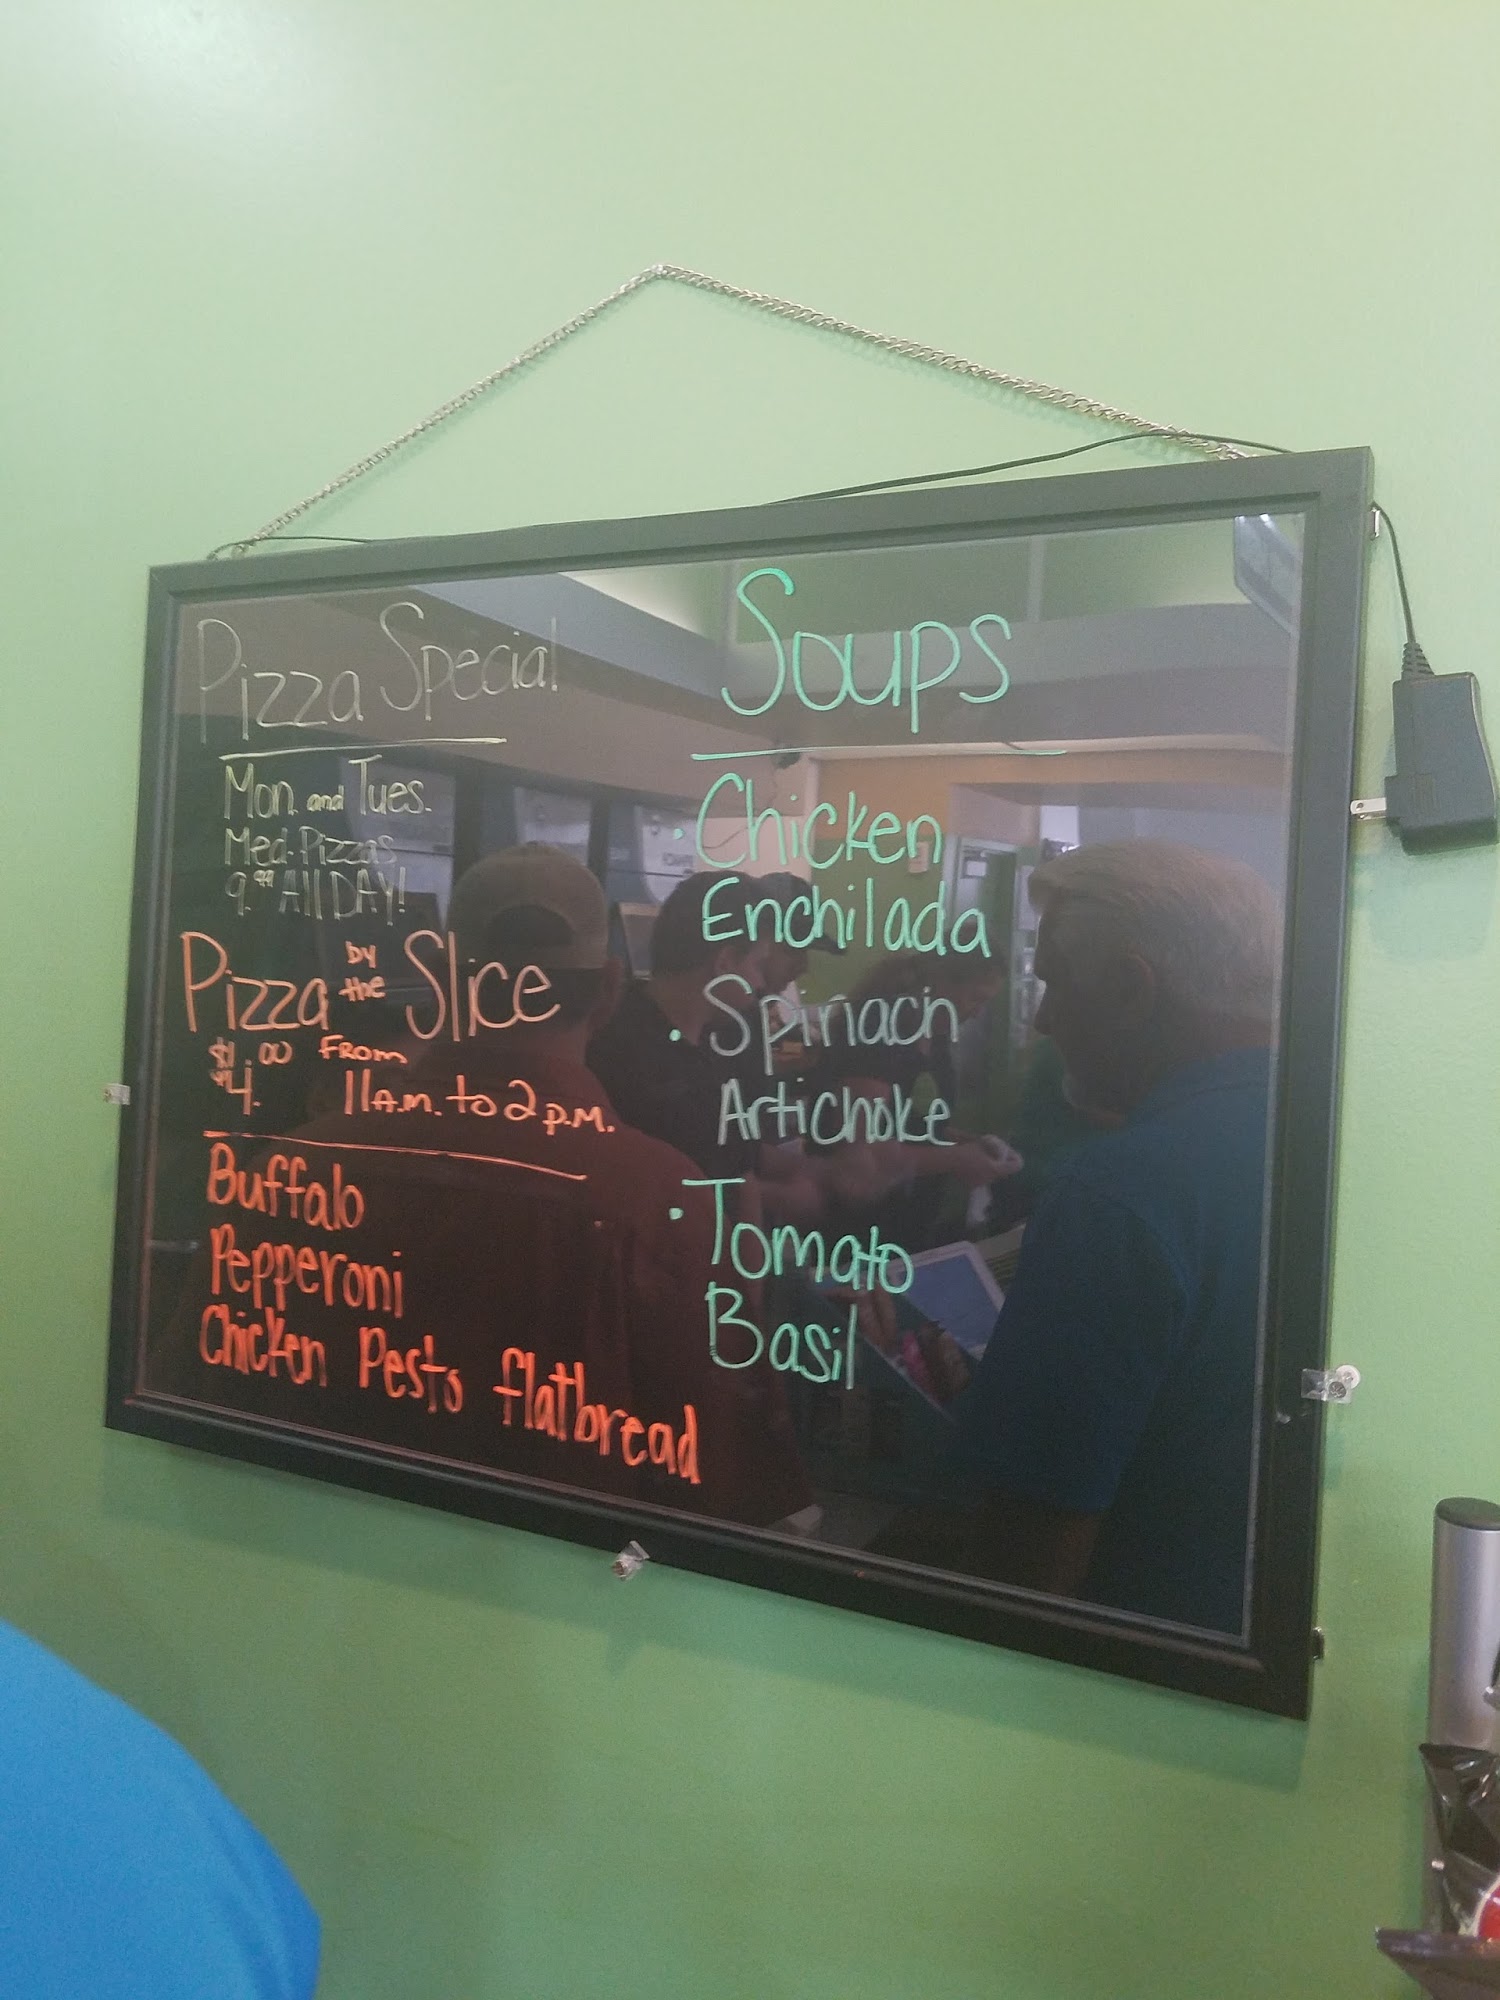 Pizza Special
Mon. and Tues.
Med. Pizzas
9.99 All DAY!
Pizza by the Slice
$4.00 From
11 A.M. to 2 P.M.
Buffalo
Pepperoni
Chicken Pesto flatbread
Soups
· Chicken
Enchilada
· Spinach
Artichoke
· Tomato
Basil